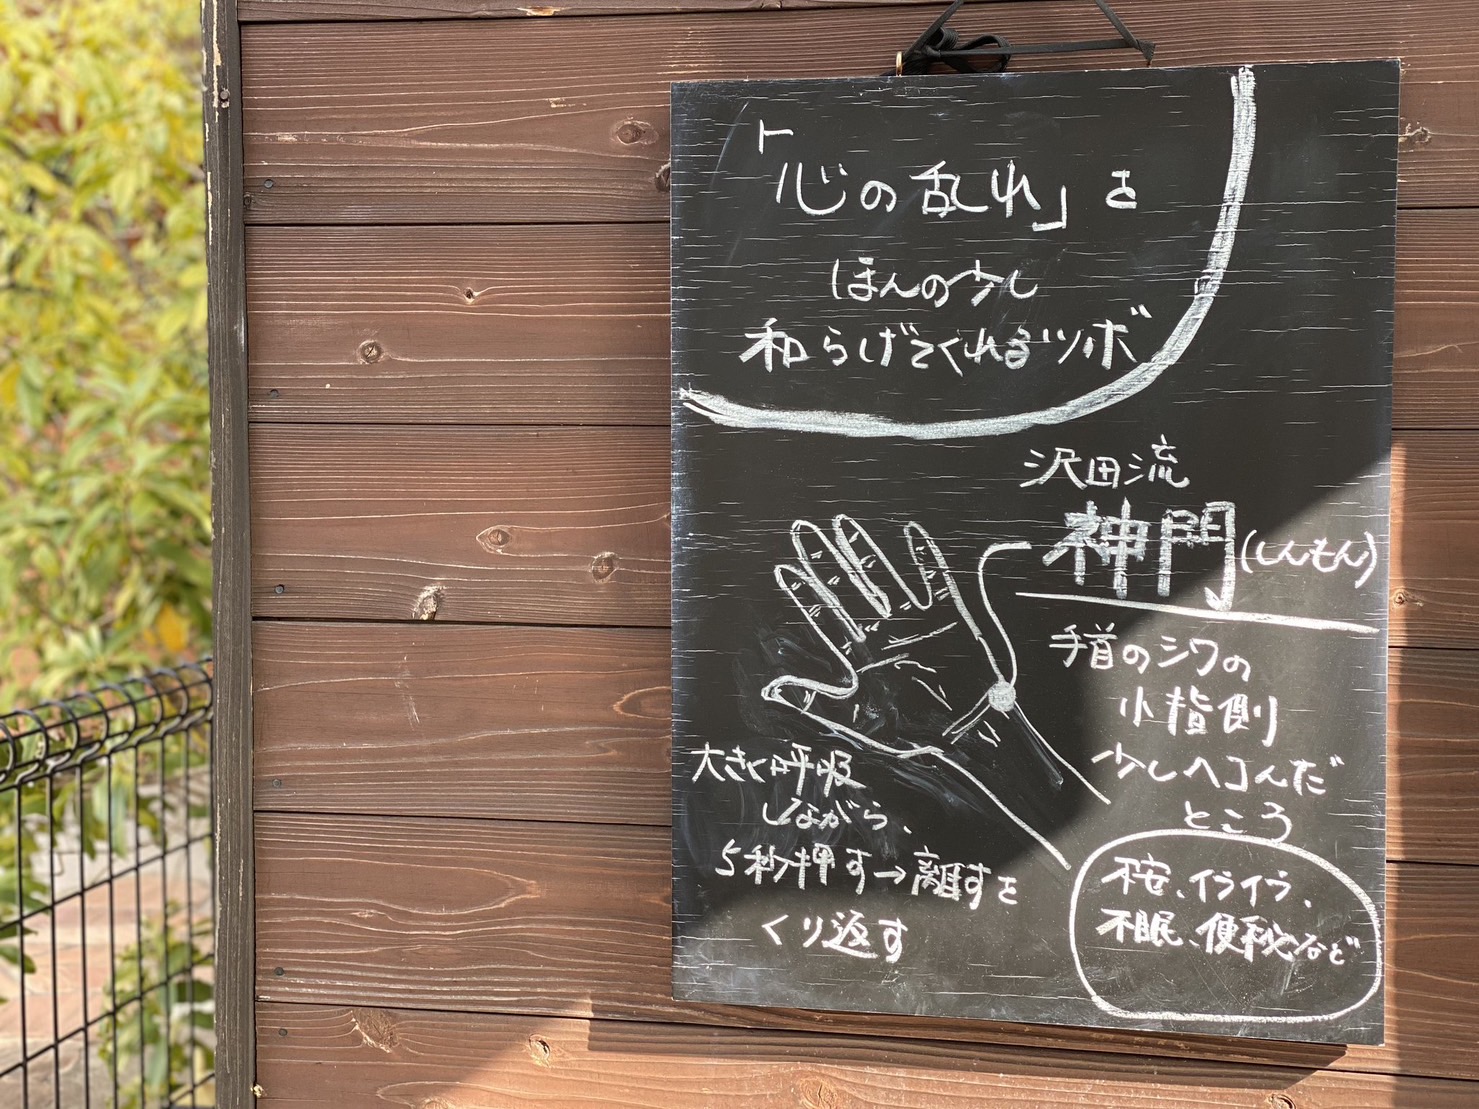 「心の乱れ」を
ほんの少し
和らげてくれるツボ
沢田流
神門(しんもん)
手首のシワの
小指側
少しヘコんだ
ところ
大きく呼吸
しながら、
5秒押す→離すを
くり返す
不安、イライラ、
不眠、便秘など